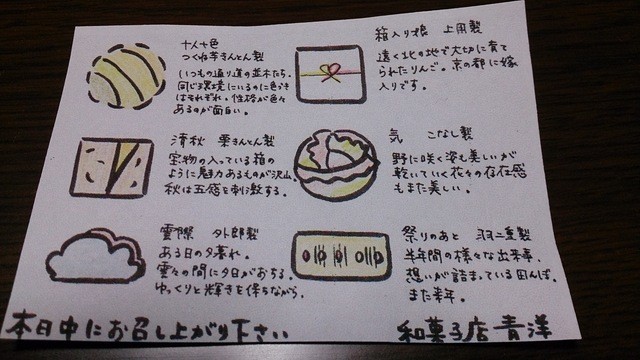 十人十色
つくね芋きんとん製
いつもの通り道の並木たち。
同じ環境にいるのに色づき
はそれぞれ。性格が色々
あるのが面白い。
箱入り娘 上用製
遠く北の地で大切に育て
られたりんご。京の都に嫁
入りです。
清秋 栗きんとん製
宝物の入っている箱の
ように魅力あるものが沢山。
秋は五感を刺激する。
気 こなし製
野に咲く姿も美しいが
乾いていく花々の存在感
もまた美しい。
雲際 外郎製
ある日の夕暮れ。
雲々の間に夕日がおちる。
ゆっくりと輝きを保ちながら。
祭りのあと 羽二重製
半年間の様々な出来事、
想いが詰まっている田んぼ。
また来年。
本日中にお召し上がり下さい
和菓子店 青洋